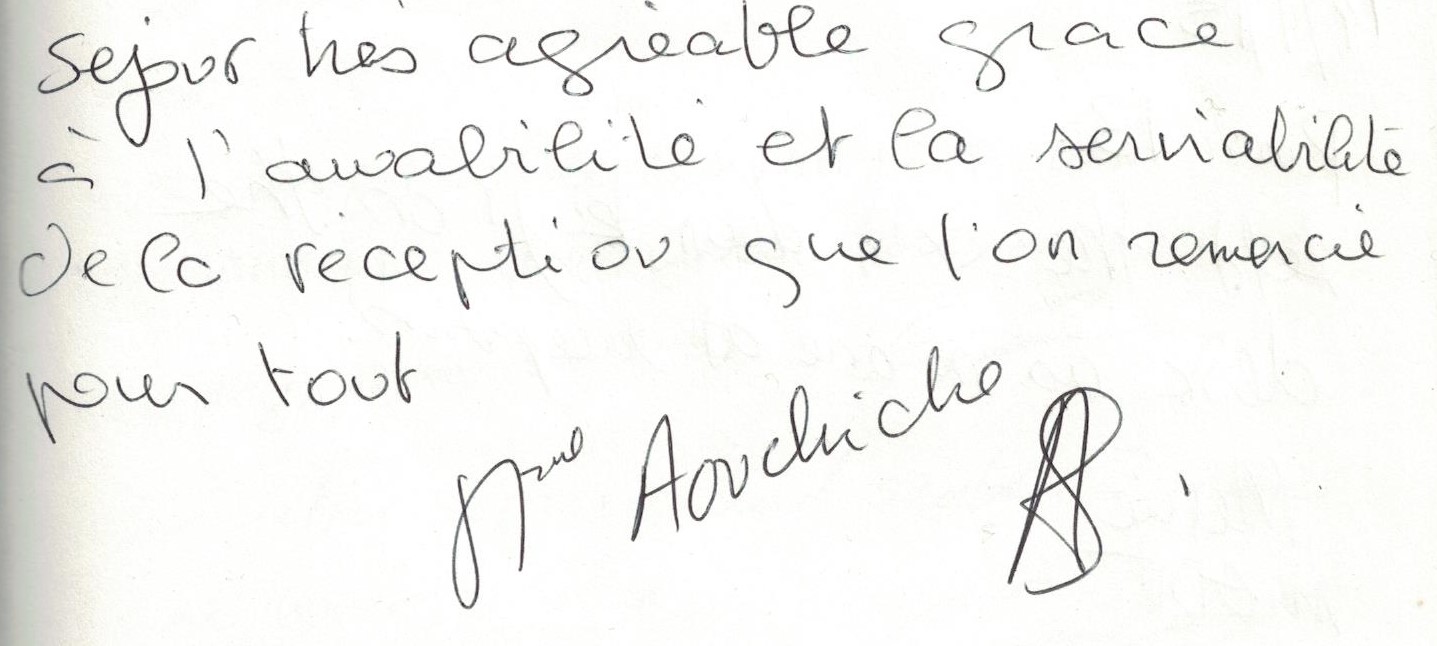 Sejour très agréable grace
à l'amabilité et la serviabilité
de la réception que l'on remercie
pour tout
Mme Aouchiche